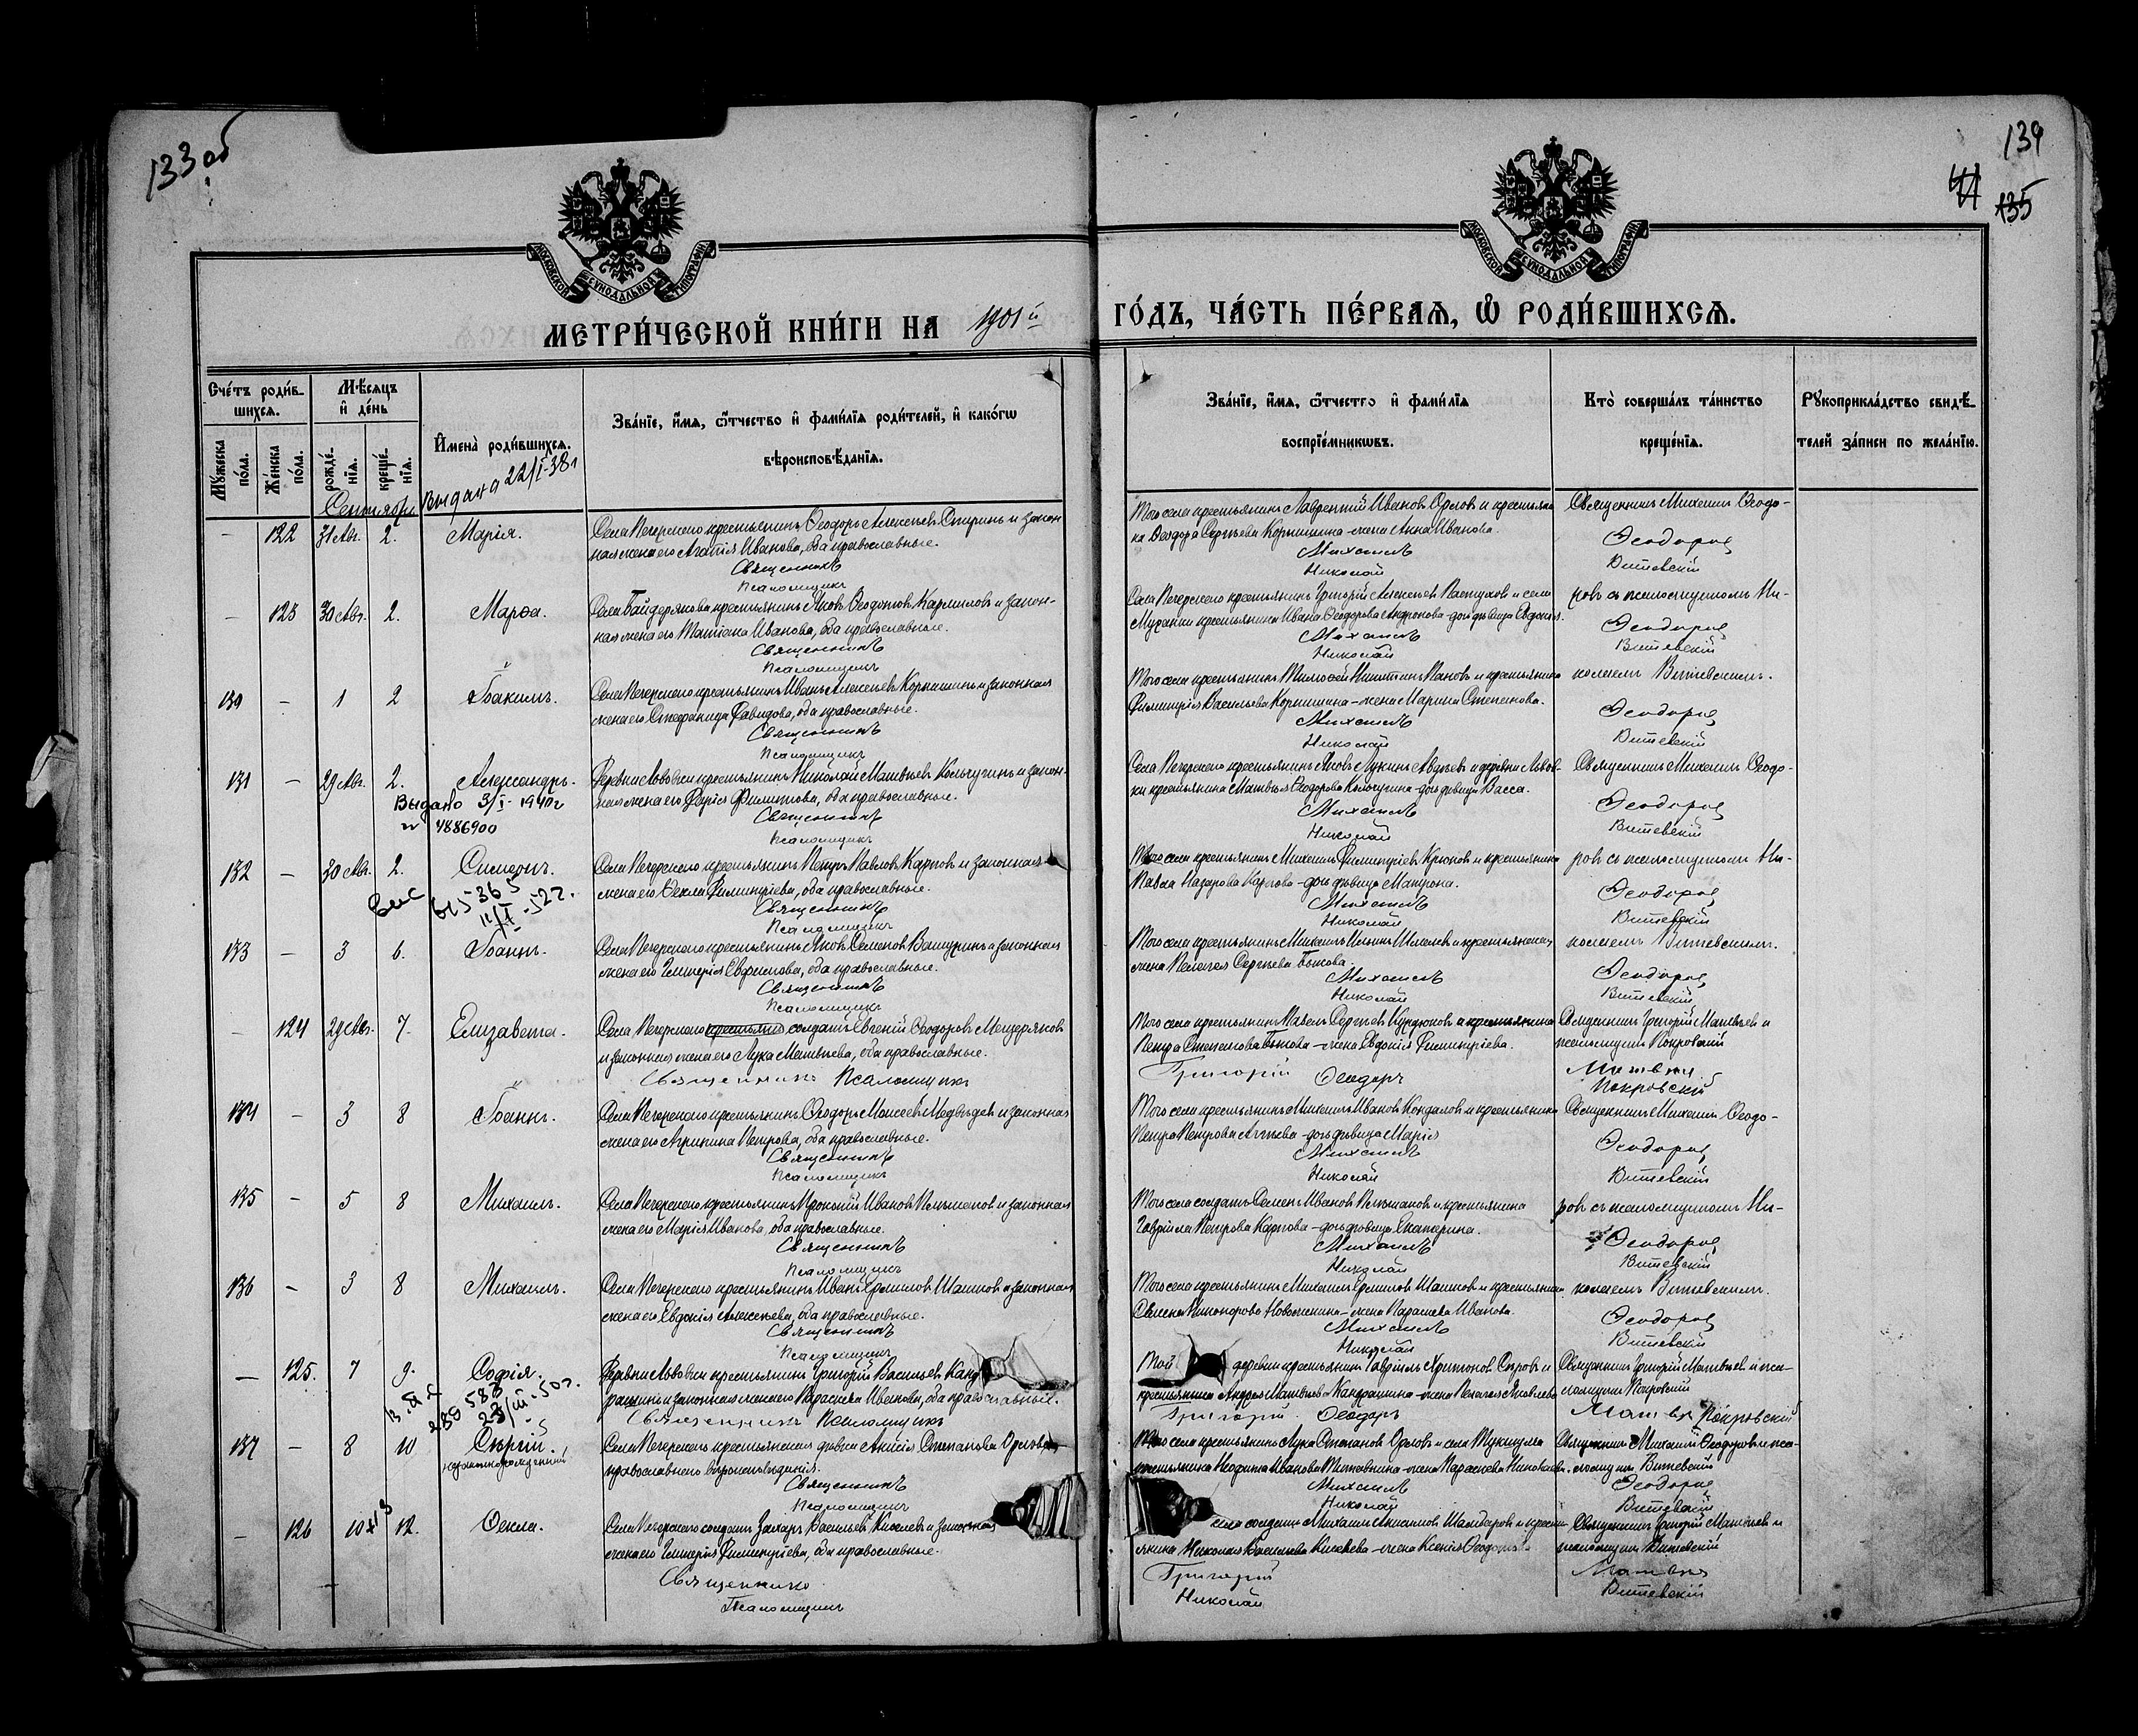 133 об
139
41
135
МОСКОВСКОЙ СѴНОДАЛЬНОЙ ТИПОГРАФІИ
МОСКОВСКОЙ СѴНОДАЛЬНОЙ ТИПОГРАФІИ
МЕТРИ́ЧЕСКОЙ КНИ́ГИ НА 1901й
ГО́ДЪ, ЧА́СТЬ ПЕ́РВАѦ, Ѡ РОДИ́ВШИХСѦ.
Сче́тъ роди́в-
шихсѧ.
Мѣсѧцъ
и де́нь
Имена̀ роди́вшихсѧ.
Зва́нїе, и́мѧ, ѻ́тчество и фами́лїѧ роди́телей, и како́гѡ
вѣроисповѣ́данїѧ.
Мꙋжеска по́ла.
Же́нска по́ла.
рожде́нїѧ.
креще́нїѧ.
Зва́нїе, и́мѧ, ѻ́тчество и фами́лїѧ
воспрїе́мникѡвъ.
Кто̀ соверша́лъ та́инство
креще́нїѧ.
Рꙋкоприкла́дство свидѣ́-
телей за́писи по жела́нїю.
Сентябрь
Выдана 22/I-38г
— 122 31 Авг. 2. Марія.
Села Печерского крестьянинъ Ѳеодоръ Алексѣевъ Спиринъ и закон-
ная жена его Агапія Иванова, оба православные.
Священникъ
Псаломщикъ
Того села крестьянинъ Лаврентій Ивановъ Орловъ и крестьяни-
на Ѳеодора Сергѣева Корнишина жена Анна Иванова.
Михаилъ
Николай
Священникъ Михаилъ Ѳеодо-
Ѳеодоров
Витевскій
— 123 30 Авг. 2. Марѳа.
Села Байдерякова крестьянинъ Яковъ Ѳеодотовъ Кармиловъ и закон-
ная жена его Татіана Иванова, оба православные.
Священникъ
Псаломщикъ
Села Печерского крестьянинъ Григорій Алексѣевъ Пастуховъ и села
Муранки крестьянина Ивана Ѳеодорова Андронова дочь дѣвица Евдокія.
Михаилъ
Николай
ровъ съ псаломщикомъ Ни-
Ѳеодоров
Витевскій
130 — 1 2 Іоакимъ.
Села Печерского крестьянинъ Иванъ Алексѣевъ Корнишинъ и законная
жена его Стефанида Давидова, оба православные.
Священникъ
Псаломщикъ
Того села крестьянинъ Тимоѳей Никитинъ Пановъ и крестьянина
Димитрія Васильева Корнишина жена Марина Степанова.
Михаилъ
Николай
колаемъ Витевскимъ.
Ѳеодоров
Витевскій
131 — 29 Авг. 2. Александръ.
Выдано 3/I-1940г
№ 4886900
Деревни Львовки крестьянинъ Николай Матвѣевъ Кольчугинъ и закон-
ная жена его Дарія Филиппова, оба православные.
Священникъ
Псаломщикъ
Села Печерского крестьянинъ Яковъ Лукинъ Авдѣевъ и деревни Львов-
ки крестьянина Матвѣя Ѳеодорова Кольчугина дочь дѣвица Васса.
Михаилъ
Николай
Священникъ Михаилъ Ѳеодо-
Ѳеодоров
Витевскій
132 — 30 Авг. 2. Симеонъ.
Села Печерского крестьянинъ Петръ Павловъ Карповъ и законная
жена его Ѳекла Димитріева, оба православные.
Священникъ
Псаломщикъ
Того села крестьянинъ Михаилъ Димитріевъ Крюковъ и крестьянина
Павла Назарова Карпова дочь дѣвица Матрона.
Михаилъ
Николай
ровъ съ псаломщикомъ Ни-
Ѳеодоров
Витевскій
133 — 3 6. Іоаннъ.
Села Печерского крестьянинъ Яковъ Семеновъ Вашуринъ и законная
жена его Гликерія Евфимова, оба православные.
Священникъ
Псаломщикъ
жена Пелагея Сергѣева Быкова.
Михаилъ
Николай
колаемъ Витевскимъ.
Ѳеодоров
Витевскій
— 124 29 Авг. 7. Елизавета.
Села Печерского солдатъ Евгеній Ѳеодоровъ Мещеряковъ
и законная жена его Лука Матвѣева, оба православные.
Священникъ Псаломщикъ
Того села крестьянинъ Павелъ Сергѣевъ Курдюковъ и крестьянина
Петра Степанова Быкова жена Евдокія Димитріева.
Григорій Ѳеодоръ
Священникъ Григорій Матвѣевъ и
псаломщикъ Покровскій
Матвѣев
Покровскій
134 — 3 8 Іоаннъ.
Села Печерского крестьянинъ Ѳеодоръ Моисеевъ Медвѣдевъ и законная
жена его Агрипина Петрова, оба православные.
Священникъ
Псаломщикъ
Того села крестьянинъ Михаилъ Ивановъ Кондаловъ и крестьянина
Петра Петрова Агѣева дочь дѣвица Марія
Михаилъ
Николай
Священникъ Михаилъ Ѳеодо-
Ѳеодоров
Витевскій
135 — 5 8 Михаилъ.
Села Печерского крестьянинъ Ивановъ и законная
жена его Марія Иванова, оба православные.
Священникъ
Псаломщикъ
Того села солдатъ Семенъ Ивановъ и крестьянина
Гавріила Петрова Карпова дочь дѣвица Екатерина.
Михаилъ
Николай
ровъ съ псаломщикомъ Ни-
Ѳеодоров
Витевскій
136 — 3 8 Михаилъ.
Села Печерского крестьянинъ Иванъ Ермиловъ Шашковъ и законная
жена его Евдокія Алексѣева, оба православные.
Священникъ
Псаломщикъ
Того села крестьянинъ Михаилъ Ермиловъ Шашковъ и крестьянина
Семена Никанорова Новоженина жена Параскева Иванова.
Михаилъ
Николай
колаемъ Витевскимъ.
Ѳеодоров
Витевскій
— 125. 7 9. Софія.
Деревни Львовки крестьянинъ Григорій Васильевъ Канд
рашинъ и законная жена его Параскева Иванова, оба православные.
Священникъ Псаломщикъ
Той деревни крестьянинъ Гавріилъ Харитоновъ Сѣровъ и
крестьянина Андрея Матвѣева Кандрашина жена Пелагея Яковлева
Григорій Ѳеодоръ
Священникъ Григорій Матвѣевъ и пса-
ломщикъ Покровскій
Матвѣев Покровскій
137 — 8 10 Сергій.
незаконнорожденный
Села Печерского крестьянская дѣвка Анисія Степанова Орлова
православного вѣроисповѣданія.
Священникъ
Псаломщикъ
Того села крестьянинъ Лука Степановъ Орловъ и села Тукшума
Михаилъ
Николай
Священникъ Михаилъ Ѳеодоровъ и пса-
ломщикъ Витевскій
Ѳеодоров
Витевскій
— 126 10 12. Ѳекла.
Села Печерского солдатъ Захаръ Васильевъ Киселевъ и законная
жена его Гликерія Димитріева, оба православные.
Священникъ
Псаломщикъ
села солдатъ Михаилъ и кресть-
янина Николая Васильева Киселева жена Ксенія Ѳеодорова
Григорій
Николай
Священникъ Григорій Матвѣевъ и
псаломщикъ Витевскій
Матвѣев
Витевскій